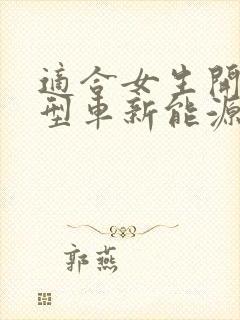 適合女生開
型車新能源
郭燕